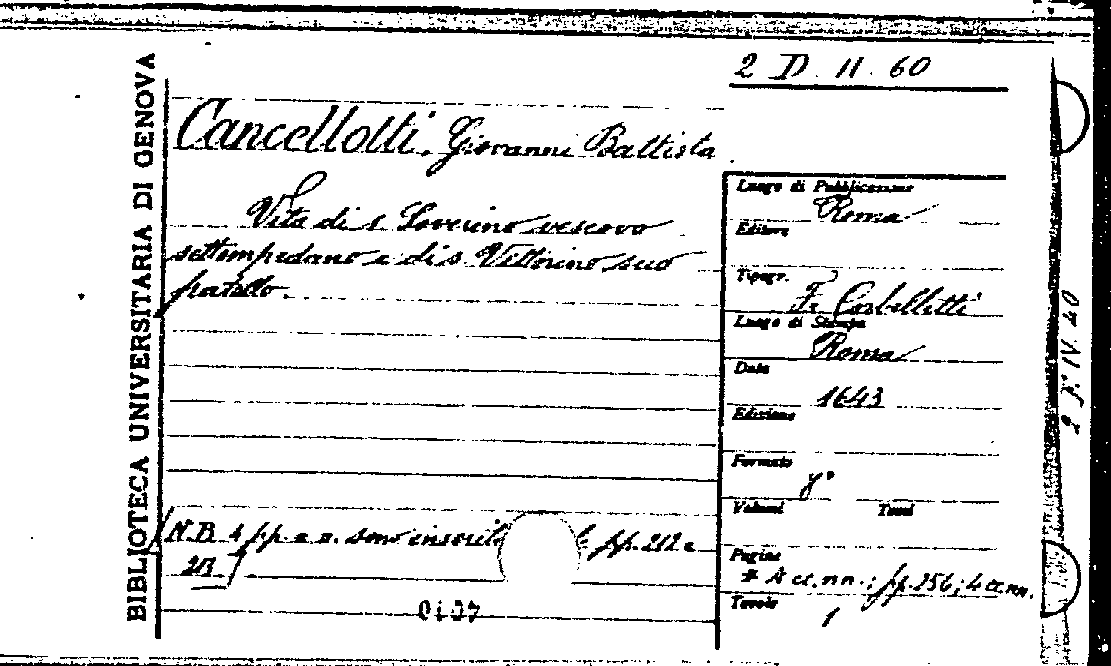 BIBLIOTECA UNIVERSITARIA DI GENOVA
2 D. II. 60
Cancellotti, Giovanni Battista
Vita di s. Severino vescovo
settempedano e di s. Vittorino suo
fratello.
N.B. 4 pp. a n. sono inserite pp. 212 e
213
Luogo di Pubblicazione
Roma
Editore
Tipogr.
F. Corbelletti
Luogo di Stampa
Roma
Data
1643
Edizione
Formato
8°
Volumi Tomi
Pagine
cc. nn.; pp. 256; 4 cc. nn.
Tavole
1
2 F. IV. 40